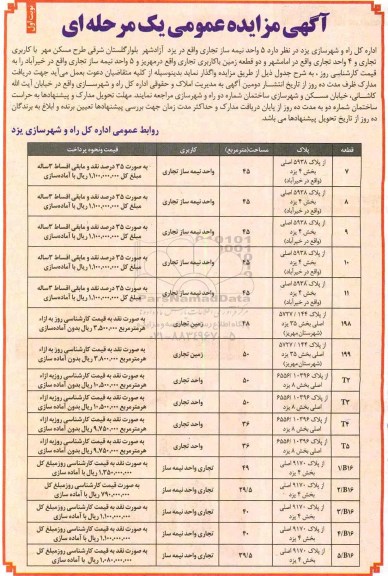 نوبت اول
آگهی مزایده عمومی یک مرحله ای
اداره کل راه و شهرسازی یزد در نظر دارد ۵ واحد نیمه ساز تجاری واقع در یزد آزادشهر بلوارگلستان شرقی طرح مسکن مهر با کاربری
تجاری و ۴ واحد تجاری واقع در امامشهر و دو قطعه زمین باکاربری تجاری واقع درمهریز و ۵ واحد نیمه ساز تجاری واقع در خیرآباد را به
قیمت کارشناسی روز ، به شرح جدول ذیل از طریق مزایده واگذار نماید بدینوسیله از کلیه متقاضیان دعوت بعمل می‌آید جهت دریافت
مدارک ظرف مدت ده روز از تاریخ انتشار دومین آگهی به مدیریت املاک و حقوقی اداره کل راه و شهرسازی واقع در خیابان آیت الله
کاشانی، خیابان مسکن و شهرسازی ساختمان شماره دو راه و شهرسازی مراجعه نمایند. مهلت تحویل مدارک و پیشنهادها به حراست
ساختمان شماره دو به مدت ده روز از پایان دریافت مدارک و حداکثر مدت زمان جهت بررسی پیشنهادها تعیین برنده و ابلاغ به برندگان
ده روز از تاریخ تحویل پیشنهادها می باشد.
روابط عمومی اداره کل راه و شهرسازی یزد
قطعه پلاک مساحت(مترمربع) کاربری قیمت ونحوه پرداخت
۷ از پلاک ۵۹۳۸ اصلی بخش ۴ یزد (واقع در خیرآباد) ۴۵ واحد نیمه ساز تجاری به صورت ۳۵ درصد نقد و مابقی اقساط ۳ساله مبلغ کل ۱,۱۰۰,۰۰۰,۰۰۰ ریال با آماده‌سازی
۸ از پلاک ۵۹۳۸ اصلی بخش ۴ یزد (واقع در خیرآباد) ۴۵ واحد نیمه ساز تجاری به صورت ۳۵ درصد نقد و مابقی اقساط ۳ساله مبلغ کل ۱,۱۰۰,۰۰۰,۰۰۰ ریال با آماده‌سازی
۹ از پلاک ۵۹۳۸ اصلی بخش ۴ یزد (واقع در خیرآباد) ۴۵ واحد نیمه ساز تجاری به صورت ۳۵ درصد نقد و مابقی اقساط ۳ساله مبلغ کل ۱,۱۰۰,۰۰۰,۰۰۰ ریال با آماده‌سازی
۱۰ از پلاک ۵۹۳۸ اصلی بخش ۴ یزد (واقع در خیرآباد) ۴۵ واحد نیمه ساز تجاری به صورت ۳۵ درصد نقد و مابقی اقساط ۳ساله مبلغ کل ۱,۱۰۰,۰۰۰,۰۰۰ ریال با آماده‌سازی
۱۱ از پلاک ۵۹۳۸ اصلی بخش ۴ یزد (واقع در خیرآباد) ۴۵ واحد نیمه ساز تجاری به صورت ۳۵ درصد نقد و مابقی اقساط ۳ساله مبلغ کل ۱,۱۰۰,۰۰۰,۰۰۰ ریال با آماده‌سازی
۱۹۸ از پلاک ۱۴۴ / ۵۷۲۷ اصلی بخش ۳۵ یزد (شهرستان‌مهریز) ۴۸ زمین تجاری به صورت نقد به قیمت کارشناسی روز به ازاء هرمترمربع ۳,۵۰۰,۰۰۰ ریال بدون آماده‌سازی
۱۹۹ از پلاک ۱۴۴ / ۵۷۲۷ اصلی بخش ۳۵ یزد (شهرستان‌مهریز) ۵۰ زمین تجاری به صورت نقد به قیمت کارشناسی روز به ازاء هرمترمربع ۳,۸۰۰,۰۰۰ ریال بدون آماده سازی
T۲ از پلاک ۱۰۳۹۶ /۶۵۵۶ اصلی بخش ۸ یزد ۵۰ واحد تجاری به صورت نقد به قیمت کارشناسی روز به ازاء هرمترمربع ۱۰,۵۰۰,۰۰۰ ریال بدون آماده سازی
T۳ از پلاک ۱۰۳۹۶ /۶۵۵۶ اصلی بخش ۸ یزد ۵۰ واحد تجاری به صورت نقد به قیمت کارشناسی روز به ازاء هرمترمربع ۱۰,۵۰۰,۰۰۰ ریال بدون آماده سازی
T۴ از پلاک ۱۰۳۹۶ /۶۵۵۶ اصلی بخش ۸ یزد ۳۶ واحد تجاری به صورت نقد به قیمت کارشناسی روز به ازاء هرمترمربع ۹,۷۵۰,۰۰۰ ریال بدون آماده سازی
T۵ از پلاک ۱۰۳۹۶ /۶۵۵۶ اصلی بخش ۸ یزد ۳۶ واحد تجاری به صورت نقد به قیمت کارشناسی روز به ازاء هرمترمربع ۹,۷۵۰,۰۰۰ ریال بدون آماده سازی
۱/B۱۶ از پلاک ۹۱۷۰ اصلی بخش ۴ یزد ۴۹ تجاری واحد نیمه ساز به صورت نقد به قیمت کارشناسی روزمبلغ کل ۱,۳۵۰,۰۰۰,۰۰۰ ریال با آماده سازی
۲/B۱۶ از پلاک ۹۱۷۰ اصلی بخش ۴ یزد ۲۹/۵ تجاری واحد نیمه ساز به صورت قیمت کارشناسی روزمبلغ کل ۷۹۰,۰۰۰,۰۰۰ ریال با آماده سازی
۳/B۱۶ از پلاک ۹۱۷۰ اصلی بخش ۴ یزد ۴۰ تجاری واحد نیمه ساز به صورت نقد به قیمت کارشناسی روزمبلغ کل ۱,۱۰۰,۰۰۰,۰۰۰ ریال با آماده سازی
۴/B۱۶ از پلاک ۹۱۷۰ اصلی بخش ۴ یزد ۴۰ تجاری واحد نیمه ساز به صورت نقد به قیمت کارشناسی روزمبلغ کل ۱,۱۰۰,۰۰۰,۰۰۰ ریال با آماده سازی
۵/B۱۶ از پلاک ۹۱۷۰ اصلی بخش ۴ یزد ۳۹/۵ تجاری واحد نیمه ساز به صورت نقد به قیمت کارشناسی روزمبلغ کل ۱,۰۸۰,۰۰۰,۰۰۰ ریال با آماده سازی
ParsNamadData